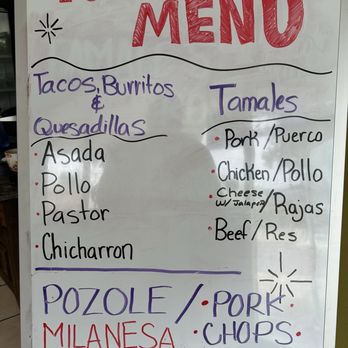 MENU
Tacos, Burritos
&
Quesadillas
· Asada
· Pollo
· Pastor
· Chicharron
Tamales
· Pork/Puerco
· Chicken/Pollo
· Cheese W/ Jalapeño/Rajas
· Beef/Res
POZOLE / · PORK ·
MILANESA · CHOPS ·